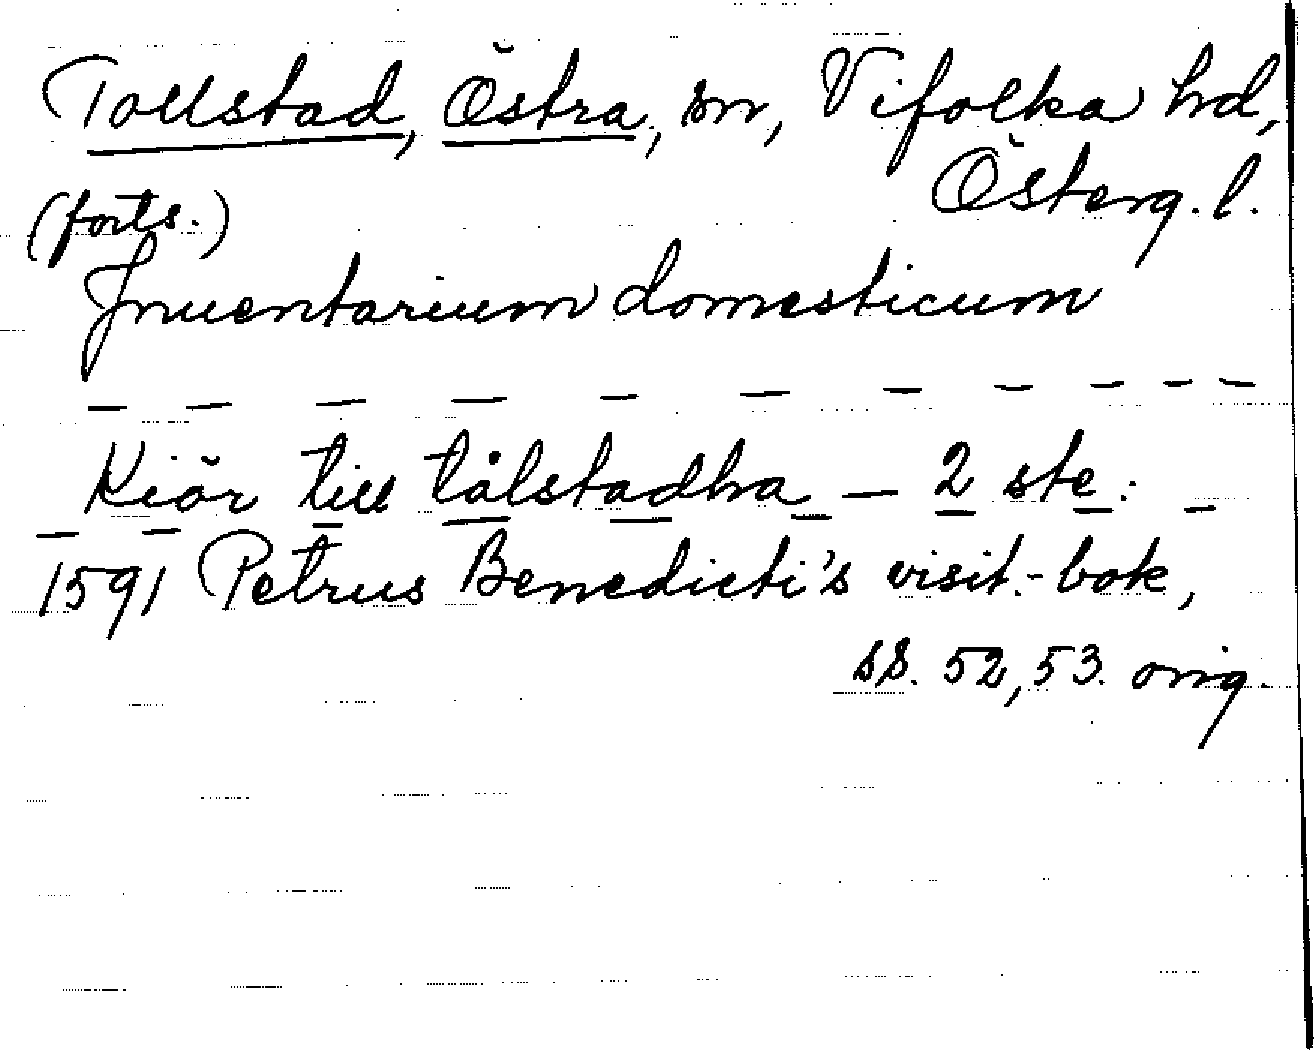 Tollstad, Östra, sn, Vifolka hd,
Österg. l.
(forts.)
Inuentarium domesticum
— — — — — — — — — —
Kiör till tålstadha — 2 ste:
— — — — — — — — —
1591 Petrus Benedicti's visit.-bok,
ss. 52, 53. orig.